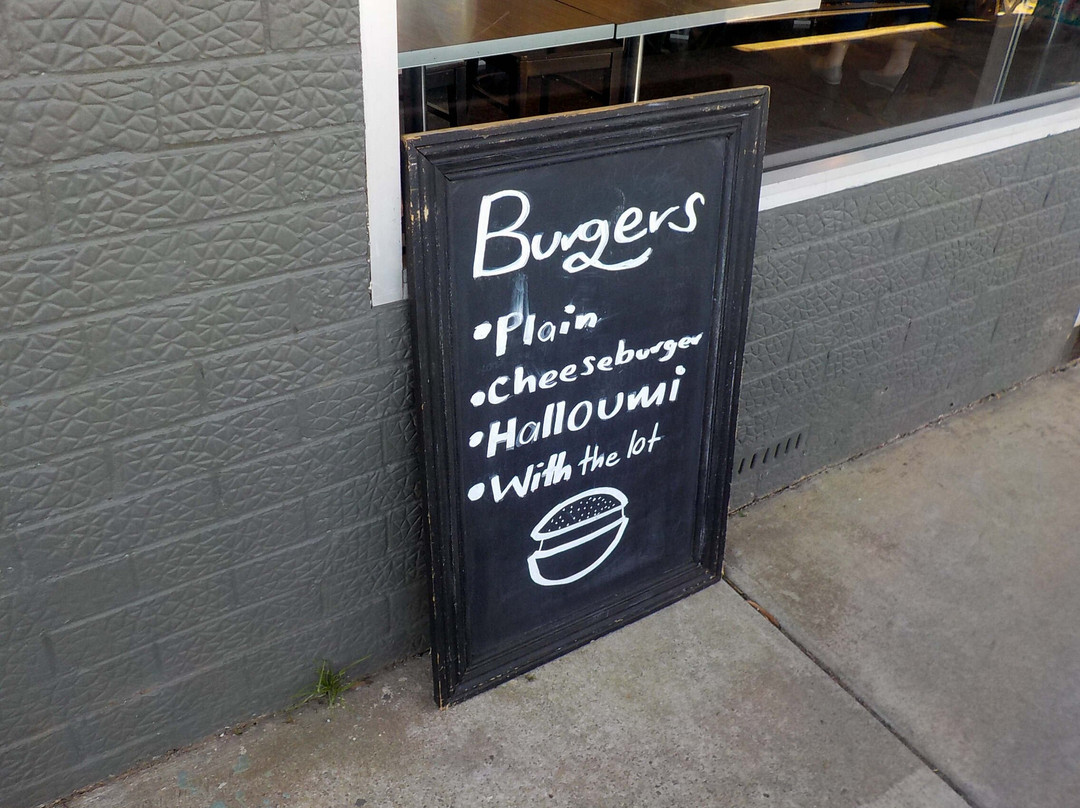 Burgers
•Plain
•Cheeseburger
•Halloumi
•With the lot